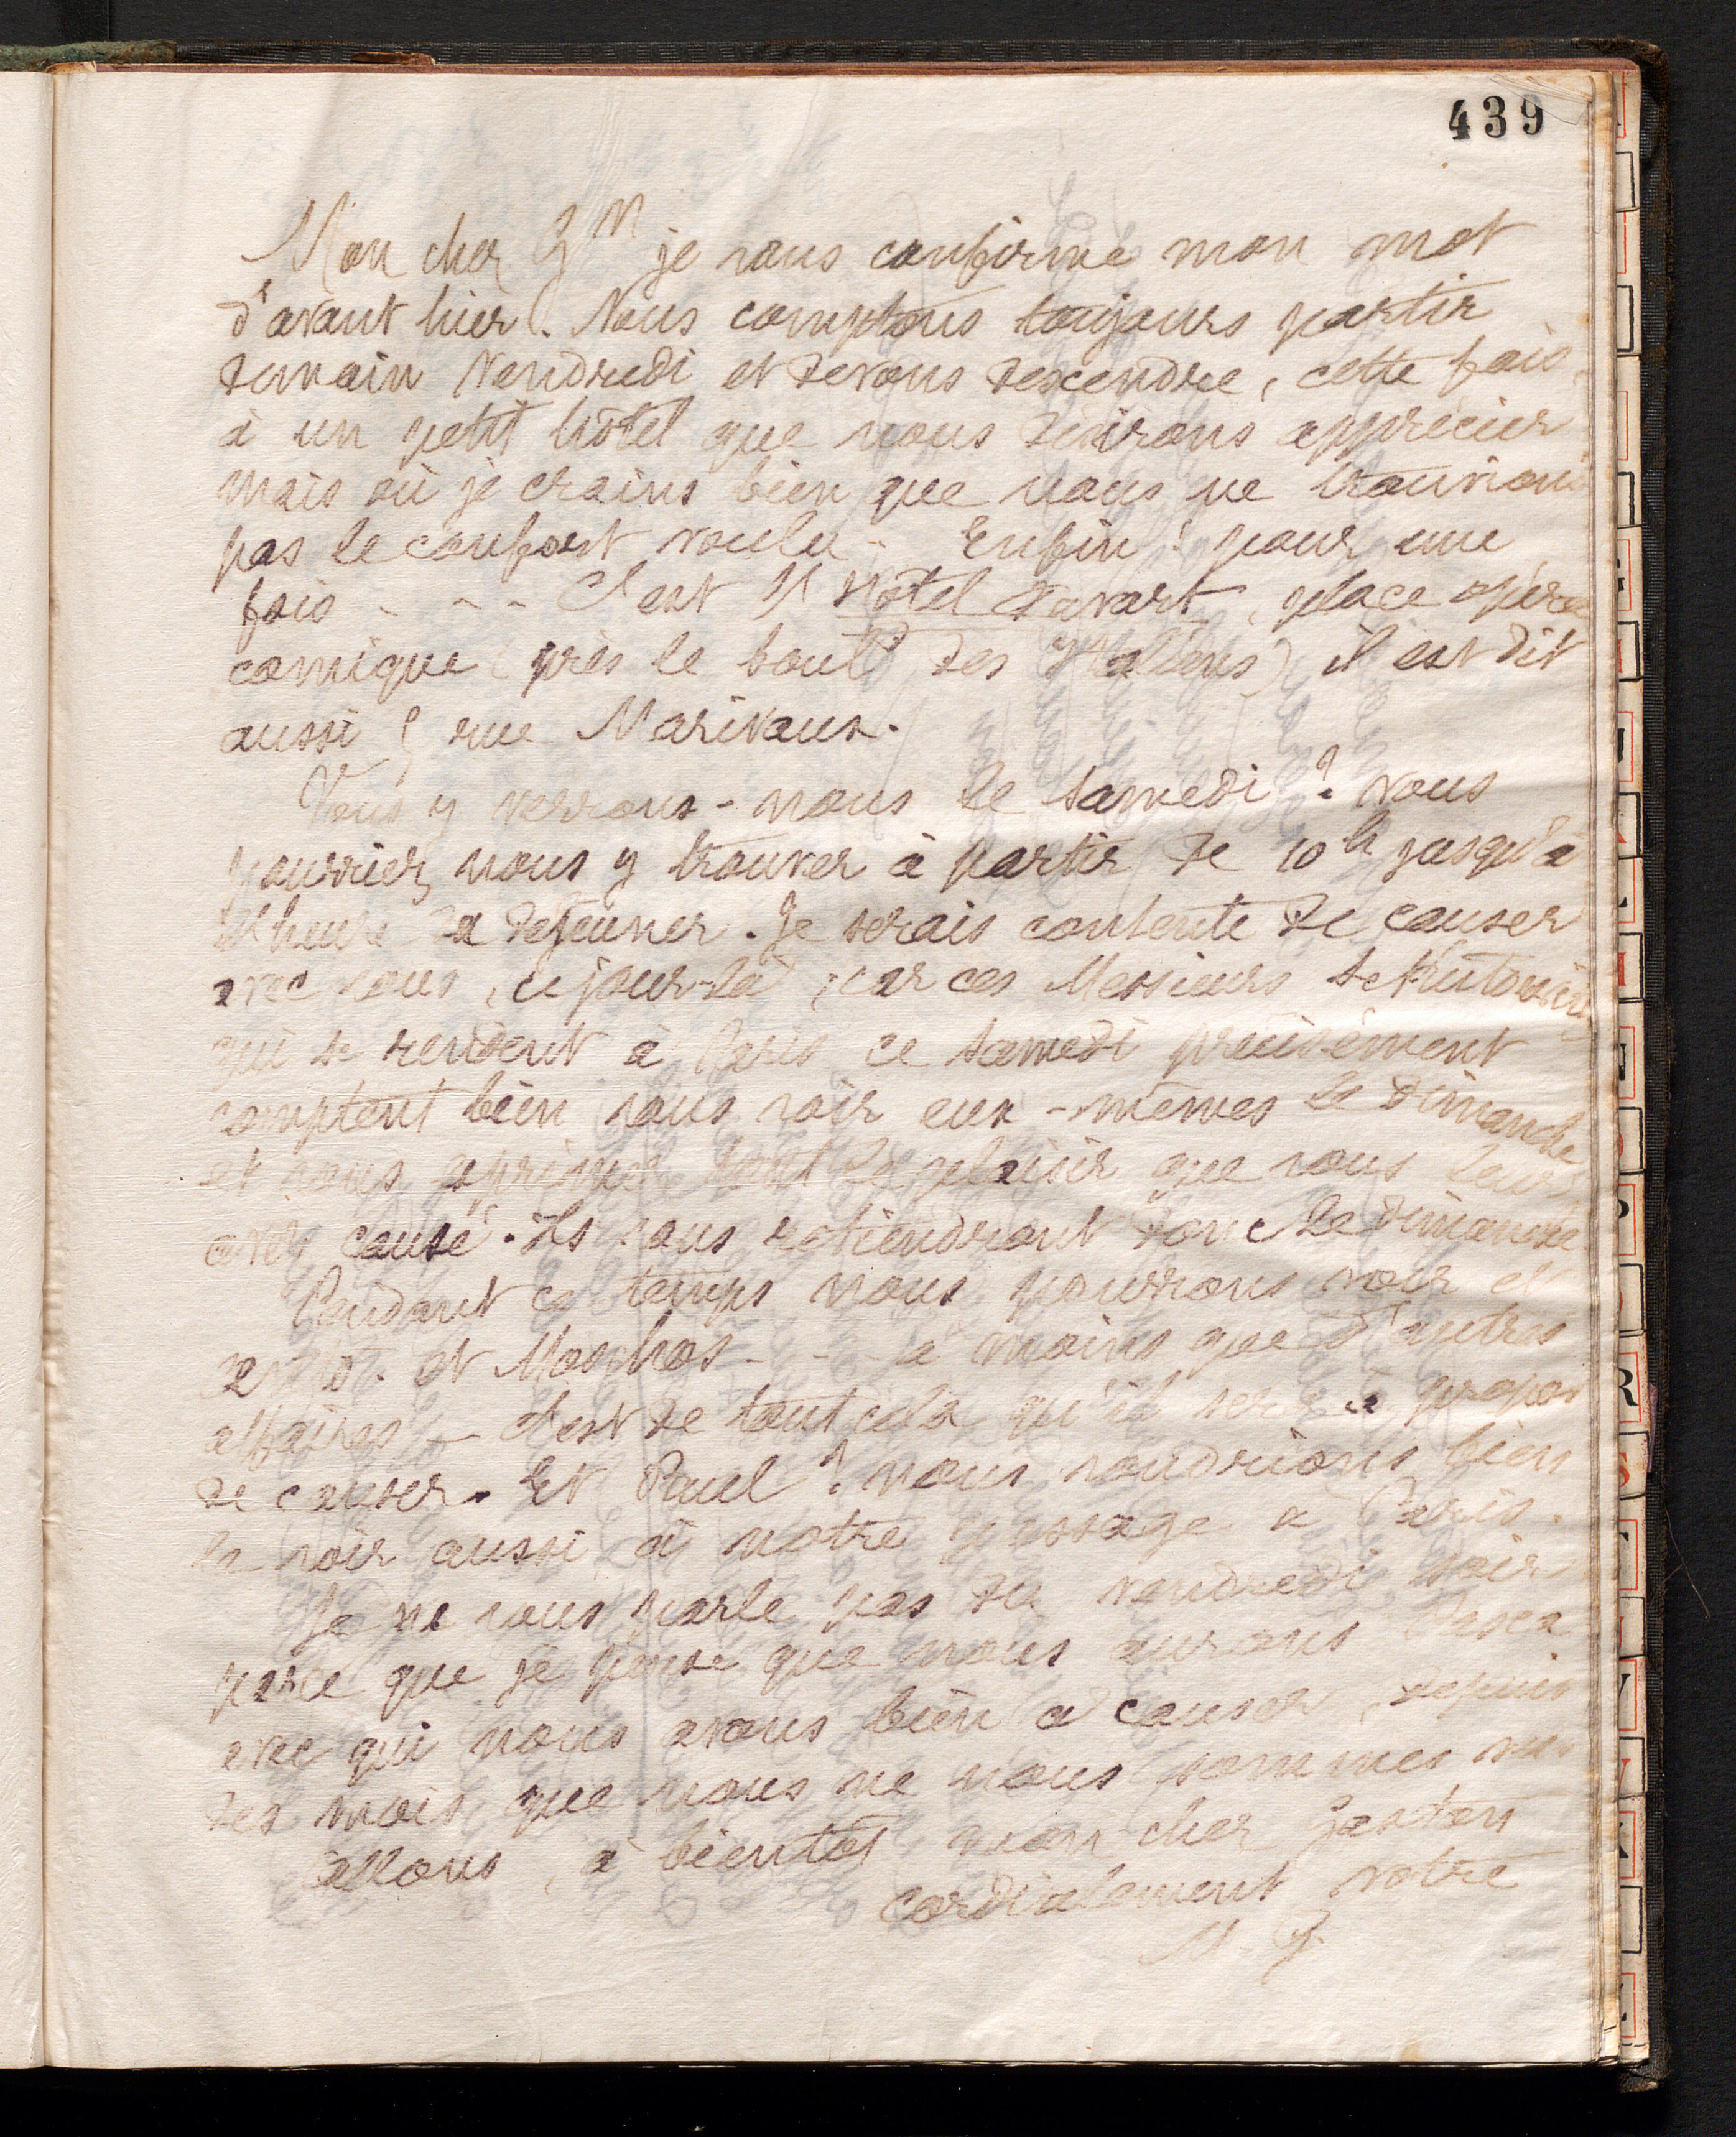 439
Mon cher Gn je vous confirme mon mot
d'avant hier. Nous comptons toujours partir
demain Vendredi et devons descendre, cette fois,
à un petit hôtel que nous désirons apprécier
mais où je crains bien que nous ne trouvions
pas le confort voulu. Enfin! pour une
fois - - - C'est l'Hôtel Favart, place opéra
comique (près le boul des Italiens) il est dit
aussi 5 rue Marivaux.
Vous y verrons-nous le samedi? vous
pourriez nous y trouver à partir de 10h jusqu'à
l'heure du déjeuner. Je serais contente de causer
avec vous, ce jour-là, car ces Messieurs
qui se rendent à Paris ce samedi précisément
comptent bien vous voir eux-mêmes le Dimanche
et vous exprimer tout le plaisir que vous leur
avez causé. Ils vous retiendront donc le Dimanche
Pendant ce temps nous pourrons voir et
et Moschos - - - à moins que d'autres
affaires - C'est de tout cela qu'il sera à propos
de causer. Et Paul? nous voudrions bien
le voir aussi à notre passage à Paris.
Je ne vous parle pas du vendredi soir
parce que je pense que nous aurons
avec qui nous avons bien à causer, depuis
des mois que nous ne nous sommes vus
allons, à bientôt mon cher Gaston
cordialement votre
M. G.